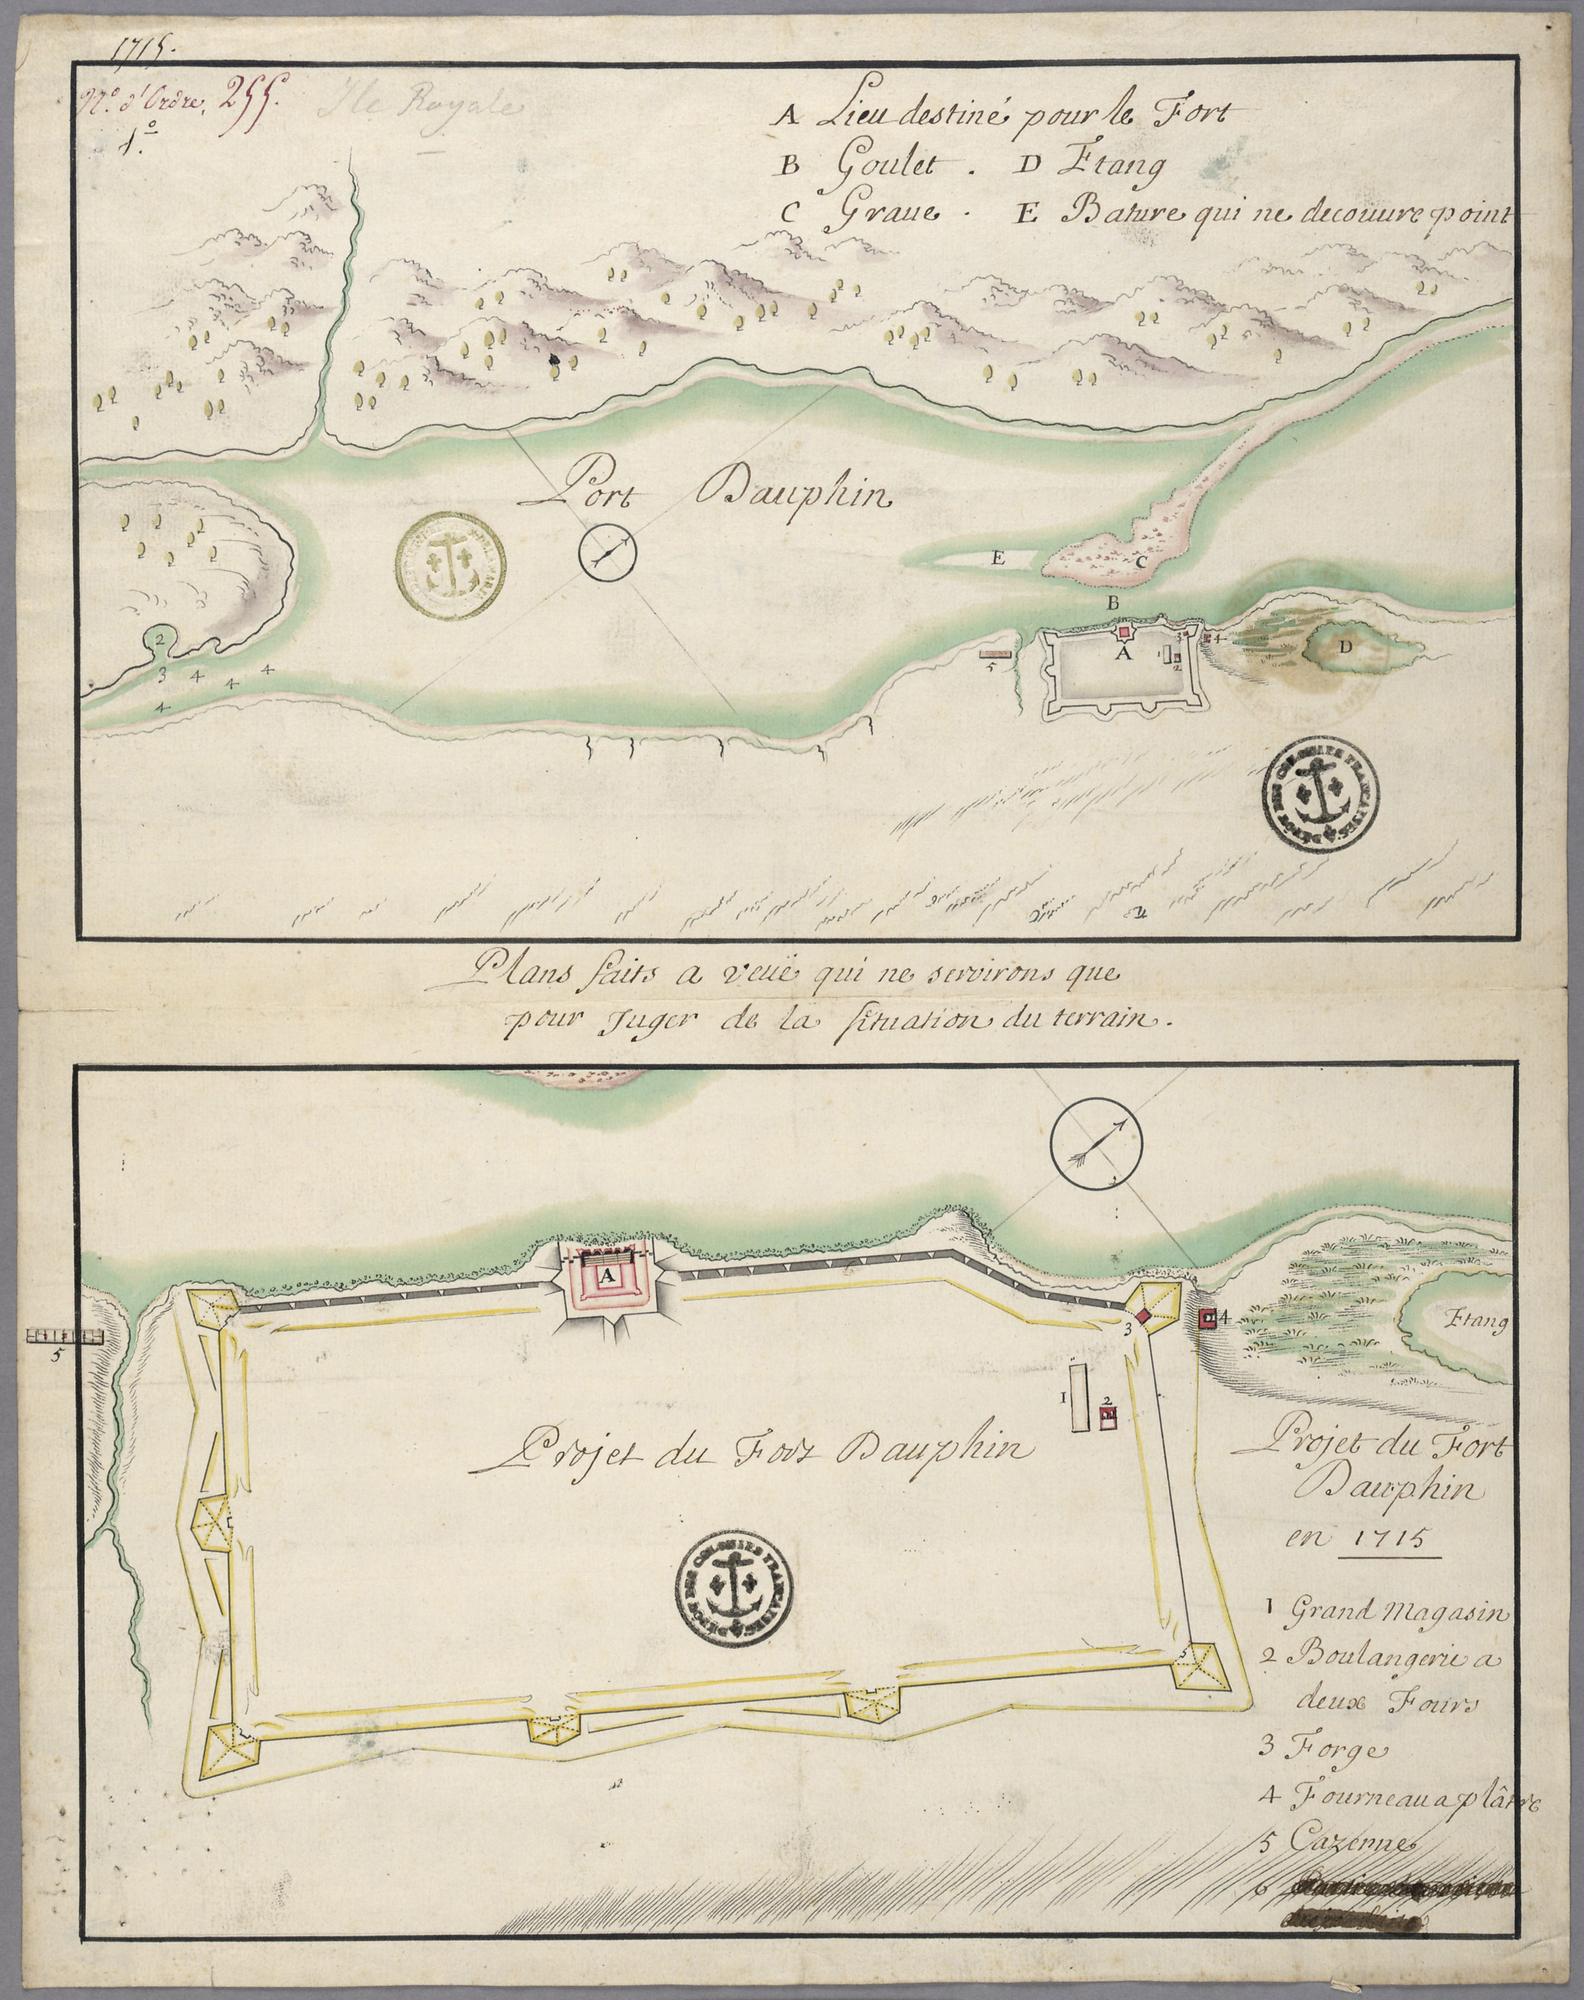 1715.
N.º d'Ordre, 255.
1.º
Ile Royale
A Lieu destiné pour le Fort
B Goulet . D Etang
C Graue . E Bature qui ne decouure point
Port Dauphin
E
C
B
A
D
1
2
3
4
5
2
3 4 4 4
4
DÉPÔT DES COLONIES FRANÇAISES
Plans faits a veuë qui ne servirons que
pour Juger de la situation du terrain.
A
5
3
4
1
2
Etang
Projet du Fort Dauphin
DÉPÔT DES COLONIES FRANÇAISES
Projet du Fort
Dauphin
en 1715
1 Grand Magasin
2 Boulangerie a
deux Fours
3 Forge
4 Fourneau a plâtre
5 Cazerne
6